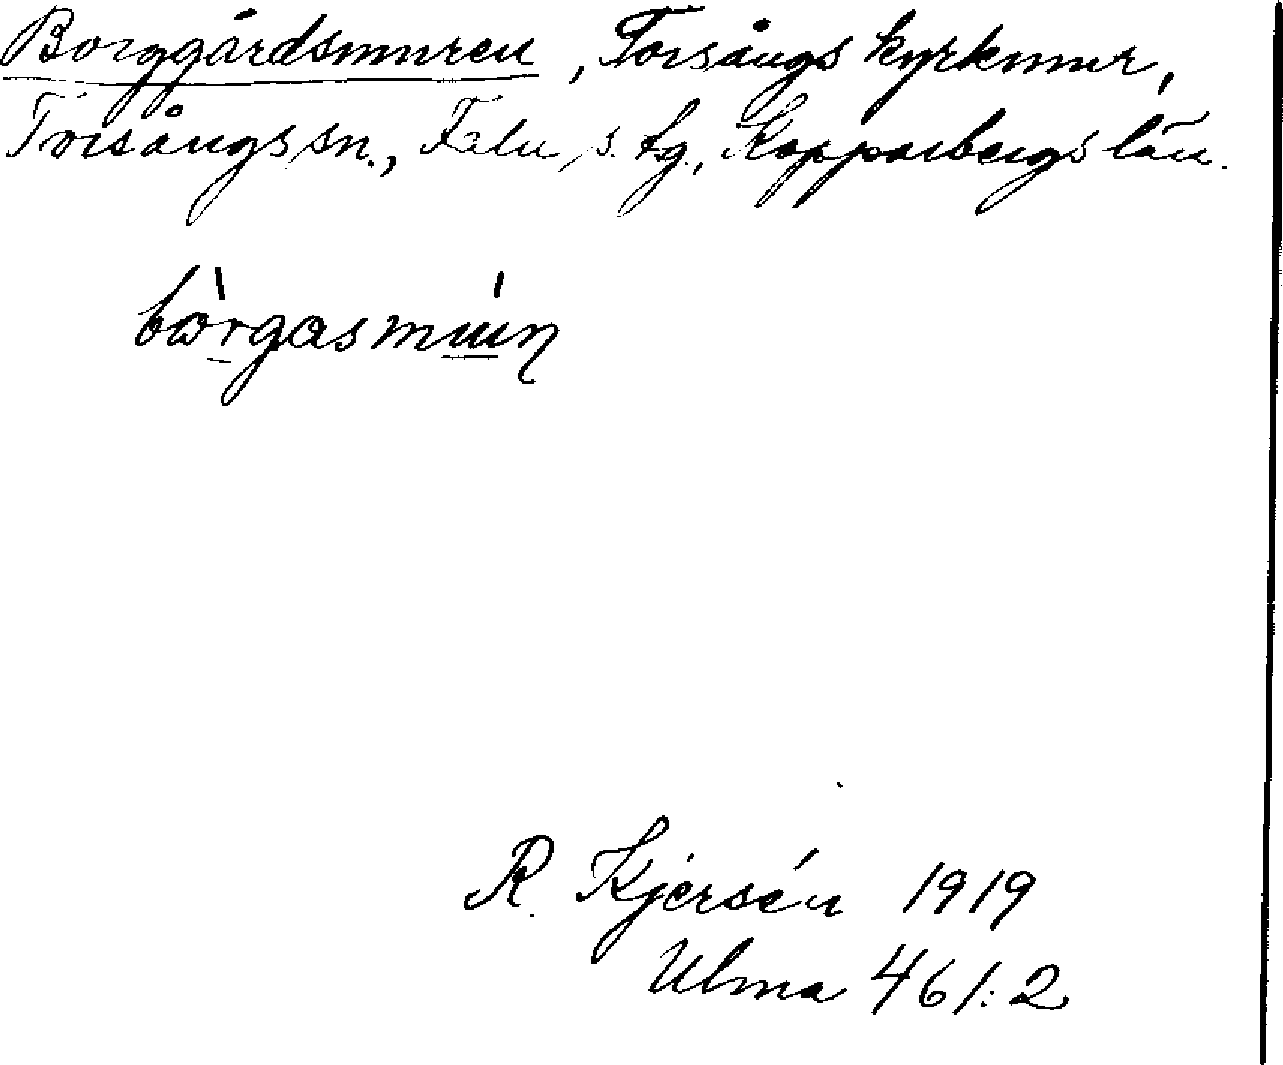 Borggårdsmuren, Torsångs kyrkmur,
Torsångs sn., Falu s. tg, Kopparbergs län.
bòrgasmúṇ
R. Kjersén 1919
Ulma 461:2